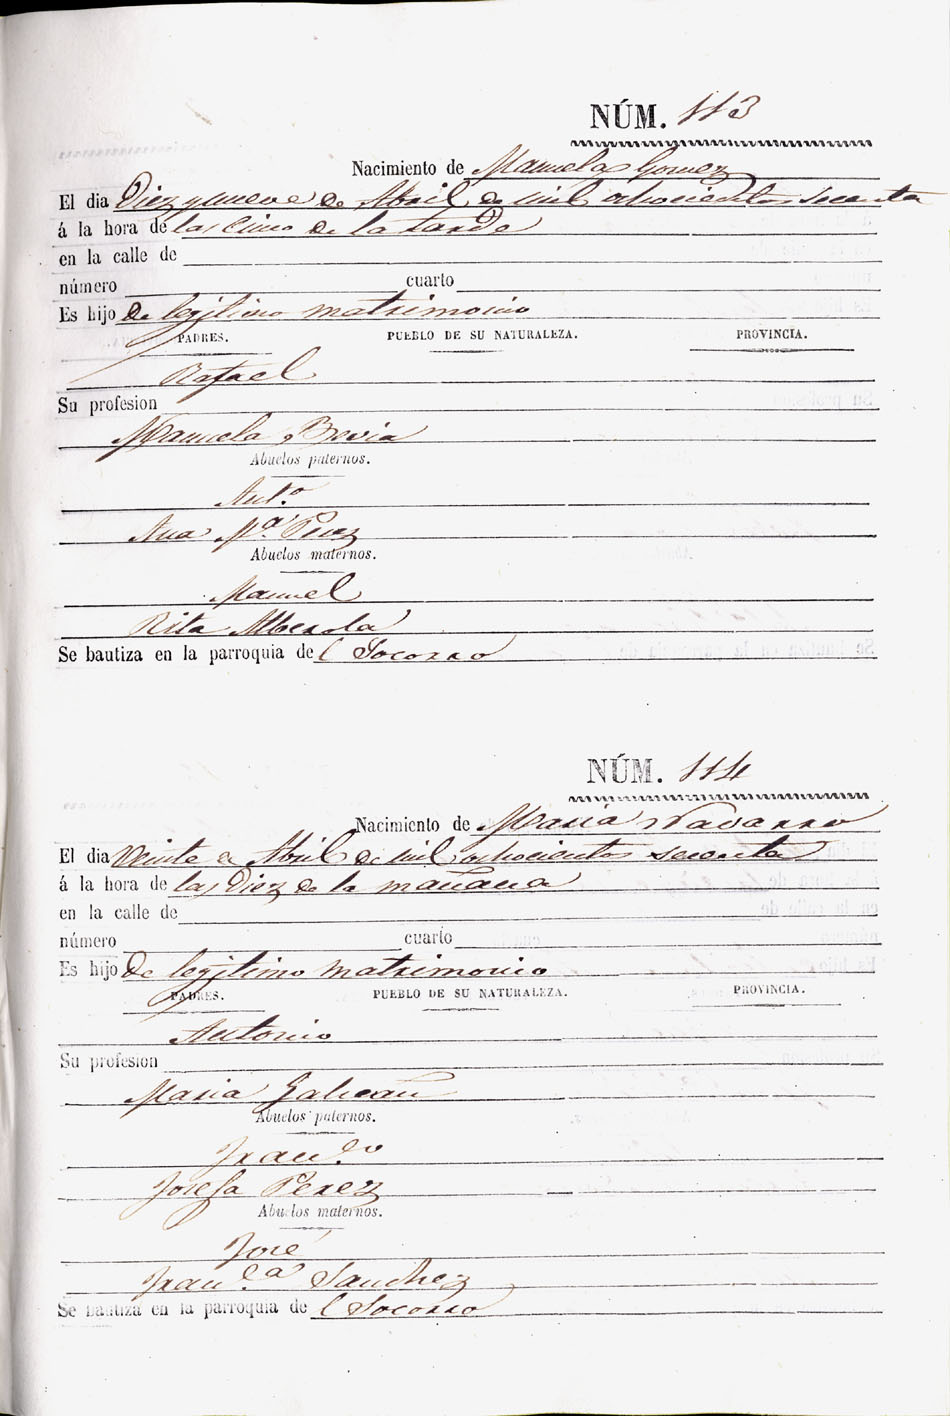 NÚM. 113
Nacimiento de Manuela Gomez
El dia Diez y nueve de Abril de mil ochocientos secenta
á la hora de las Cinco de la tarde
en la calle de
número cuarto
Es hijo de legitimo matrimonio
PADRES. PUEBLO DE SU NATURALEZA. PROVINCIA.
Rafael
Su profesion
Manuela Brevia
Abuelos paternos.
Ant.º
Ana M.ª Perez
Abuelos maternos.
Manuel
Rita Alberola
Se bautiza en la parroquia del Socorro
NÚM. 114
Nacimiento de Maria Navarro
El dia veinte de Abril de mil ochocientos secenta
á la hora de las Diez de la mañana
en la calle de
número cuarto
Es hijo de legitimo matrimonio
PADRES. PUEBLO DE SU NATURALEZA. PROVINCIA.
Antonio
Su profesion
Maria
Abuelos paternos.
Fran.co
Josefa Perez
Abuelos maternos.
José
Fran.ca Sanchez
Se bautiza en la parroquia de l Socorro